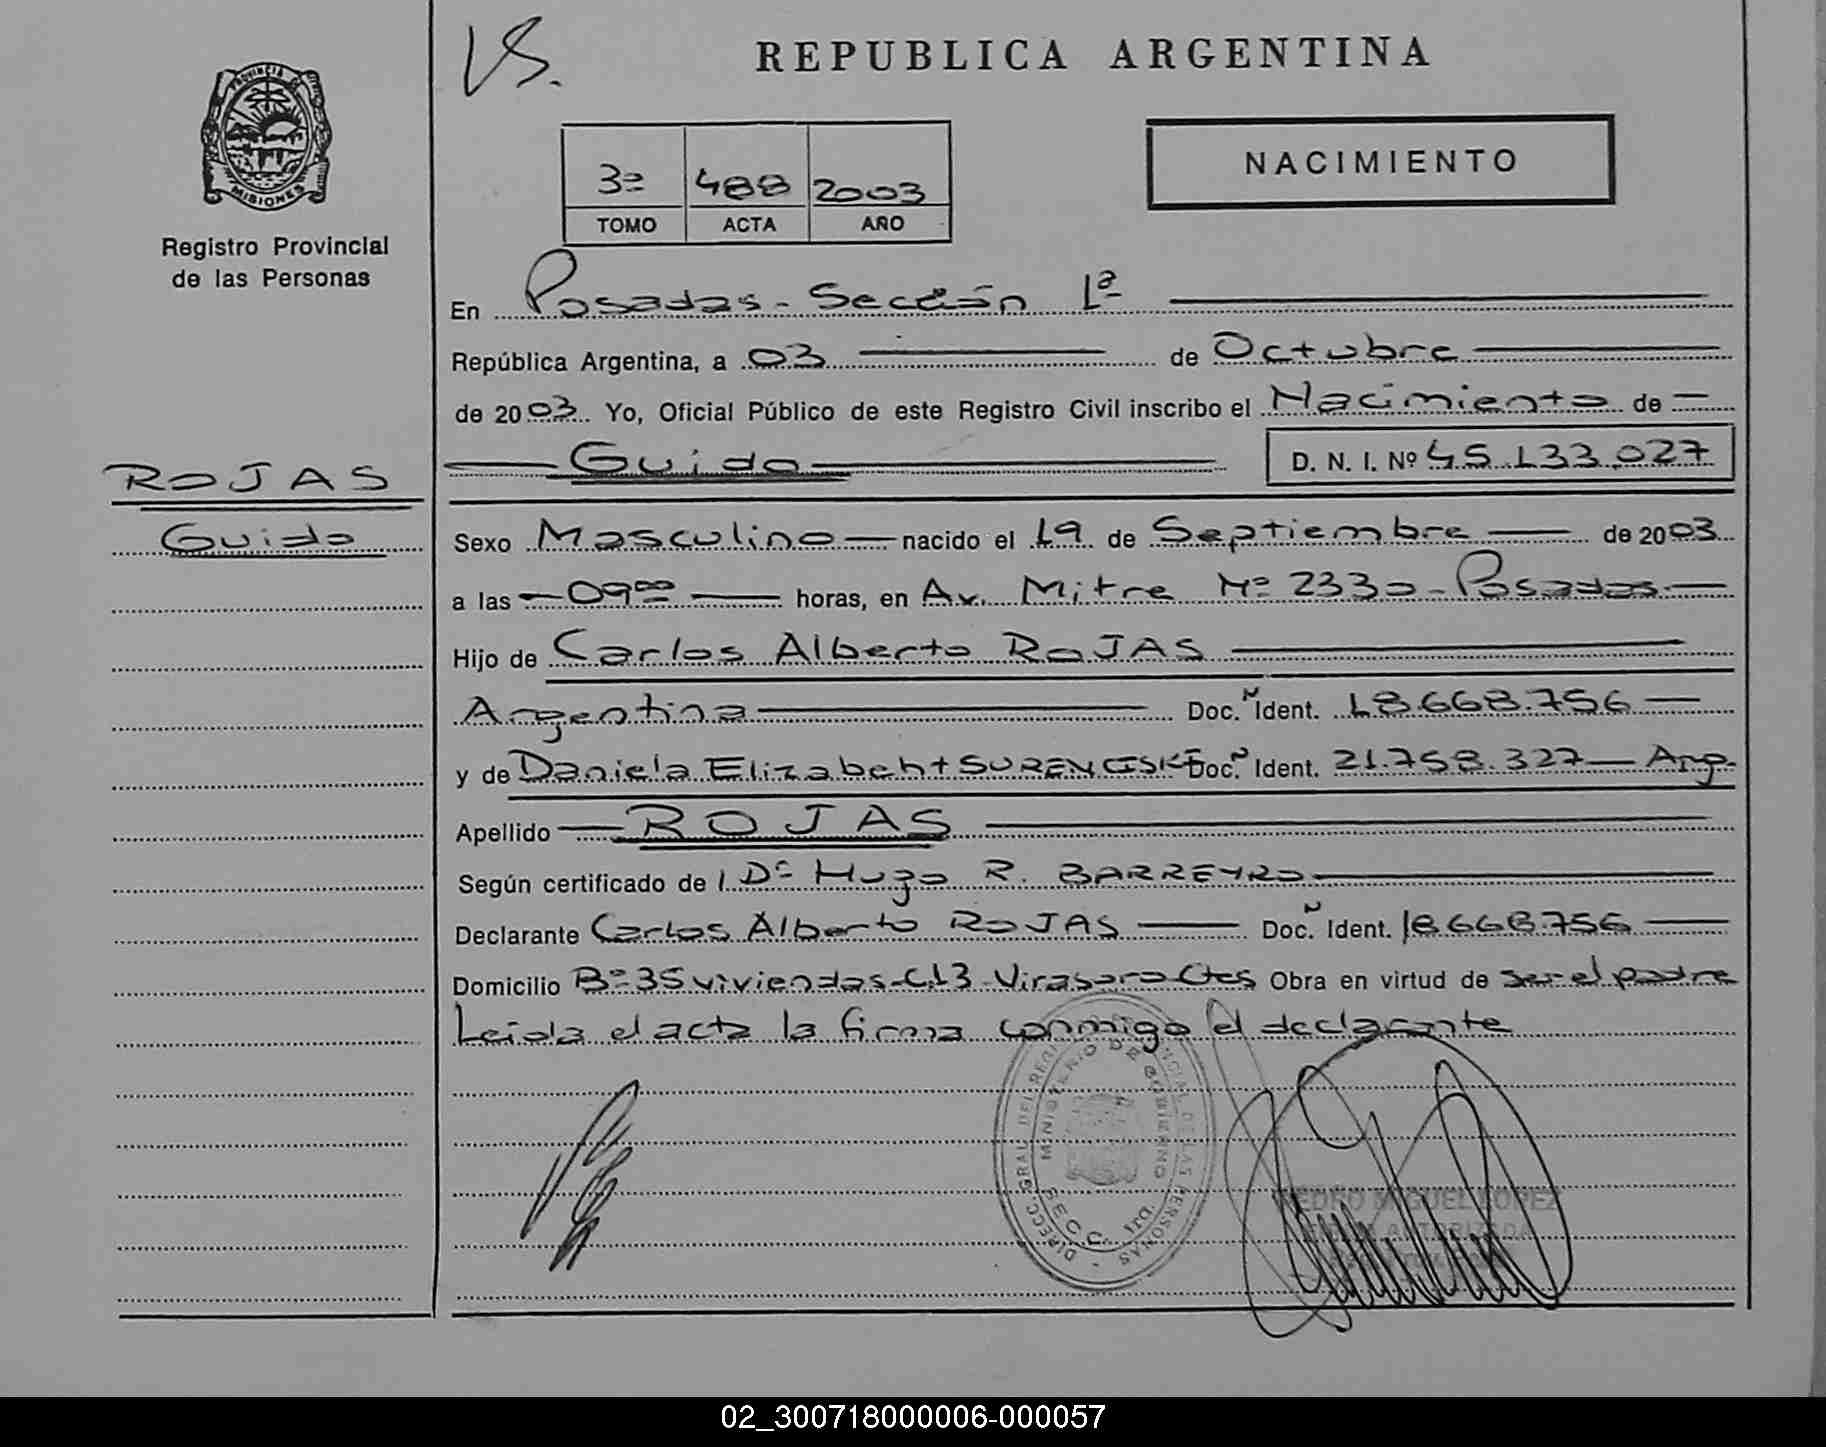 VS.
REPUBLICA ARGENTINA
PROVINCIA DE
MISIONES
Registro Provincial
de las Personas
NACIMIENTO
3º 488 2003
TOMO ACTA AÑO
En Posadas - Sección 1ª
República Argentina, a 03 de Octubre
de 2003 Yo, Oficial Público de este Registro Civil inscribo el Nacimiento de
Guido D. N. I. Nº 45.133.027
ROJAS
Guido
Sexo Masculino nacido el 19 de Septiembre de 2003
a las 09⁰⁰ horas, en Av. Mitre Nº 2330 - Posadas
Hijo de Carlos Alberto ROJAS
Argentina Doc. Ident. 18.668.756
y de Daniela Elizabeht Doc. Ident. 21.758.327 Arg.
Apellido ROJAS
Según certificado de Dº Hugo R. BARREYRO
Declarante Carlos Alberto ROJAS Doc. Ident. 18.668.756
Domicilio Bº 35 viviendas - C.13 - Virasoro Ctes Obra en virtud de ser el padre
Leida el acta la firma conmigo el declarante
MINISTERIO DE GOBIERNO
SECC. 1ra.
PEDRO MIGUEL LOPEZ
02_300718000006-000057